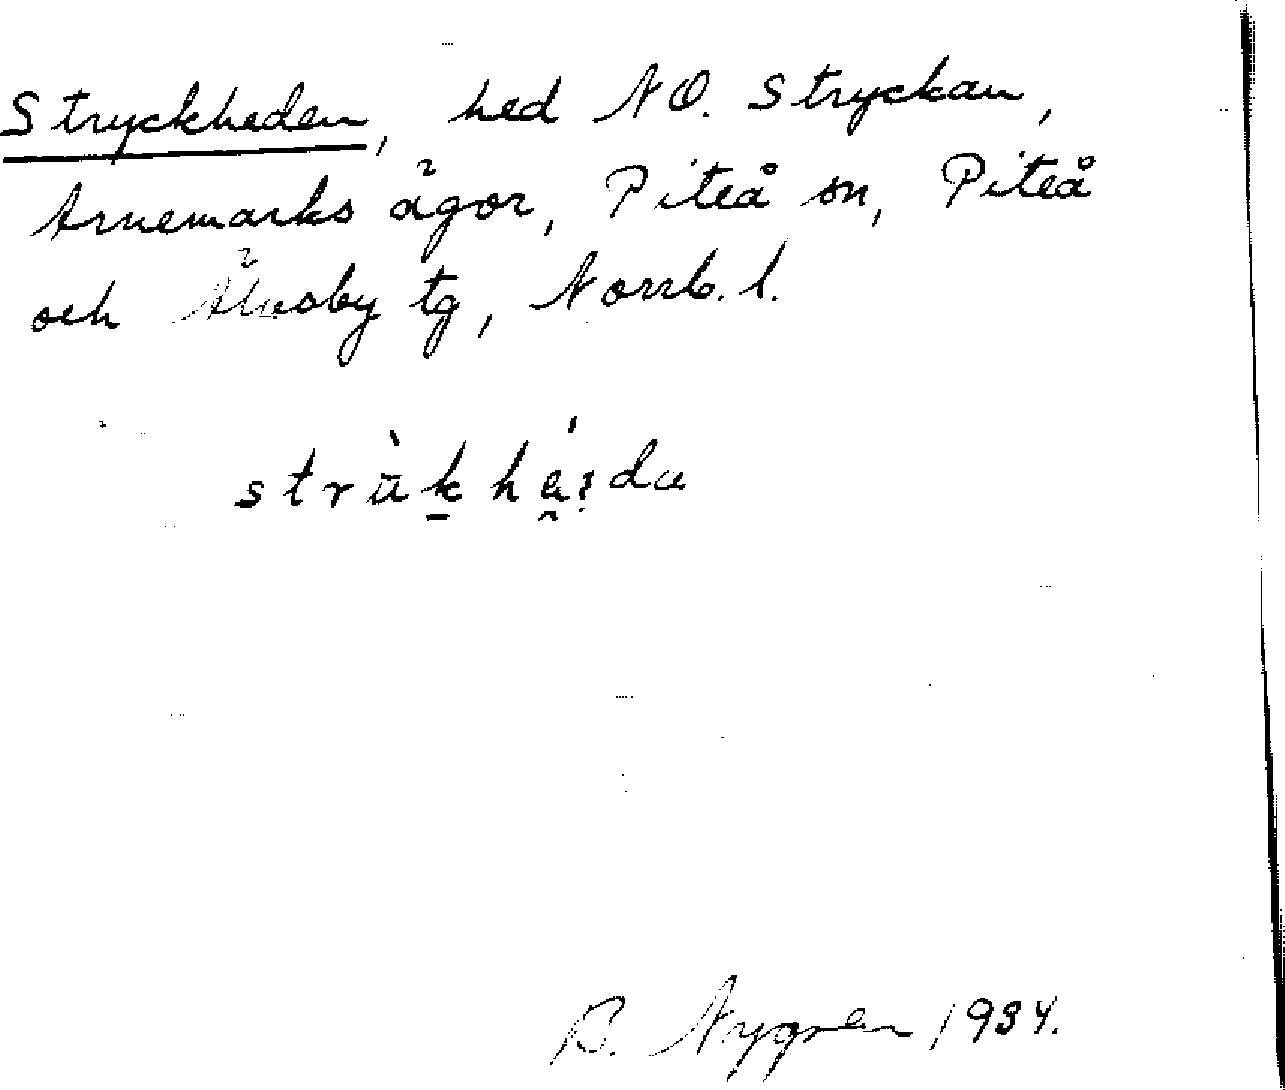 Stryckheden, hed NO. Stryckan,
Arnemarks ägor, Piteå sn, Piteå
och Älvsby tg, Norrb. l.
B. Nygren 1934.